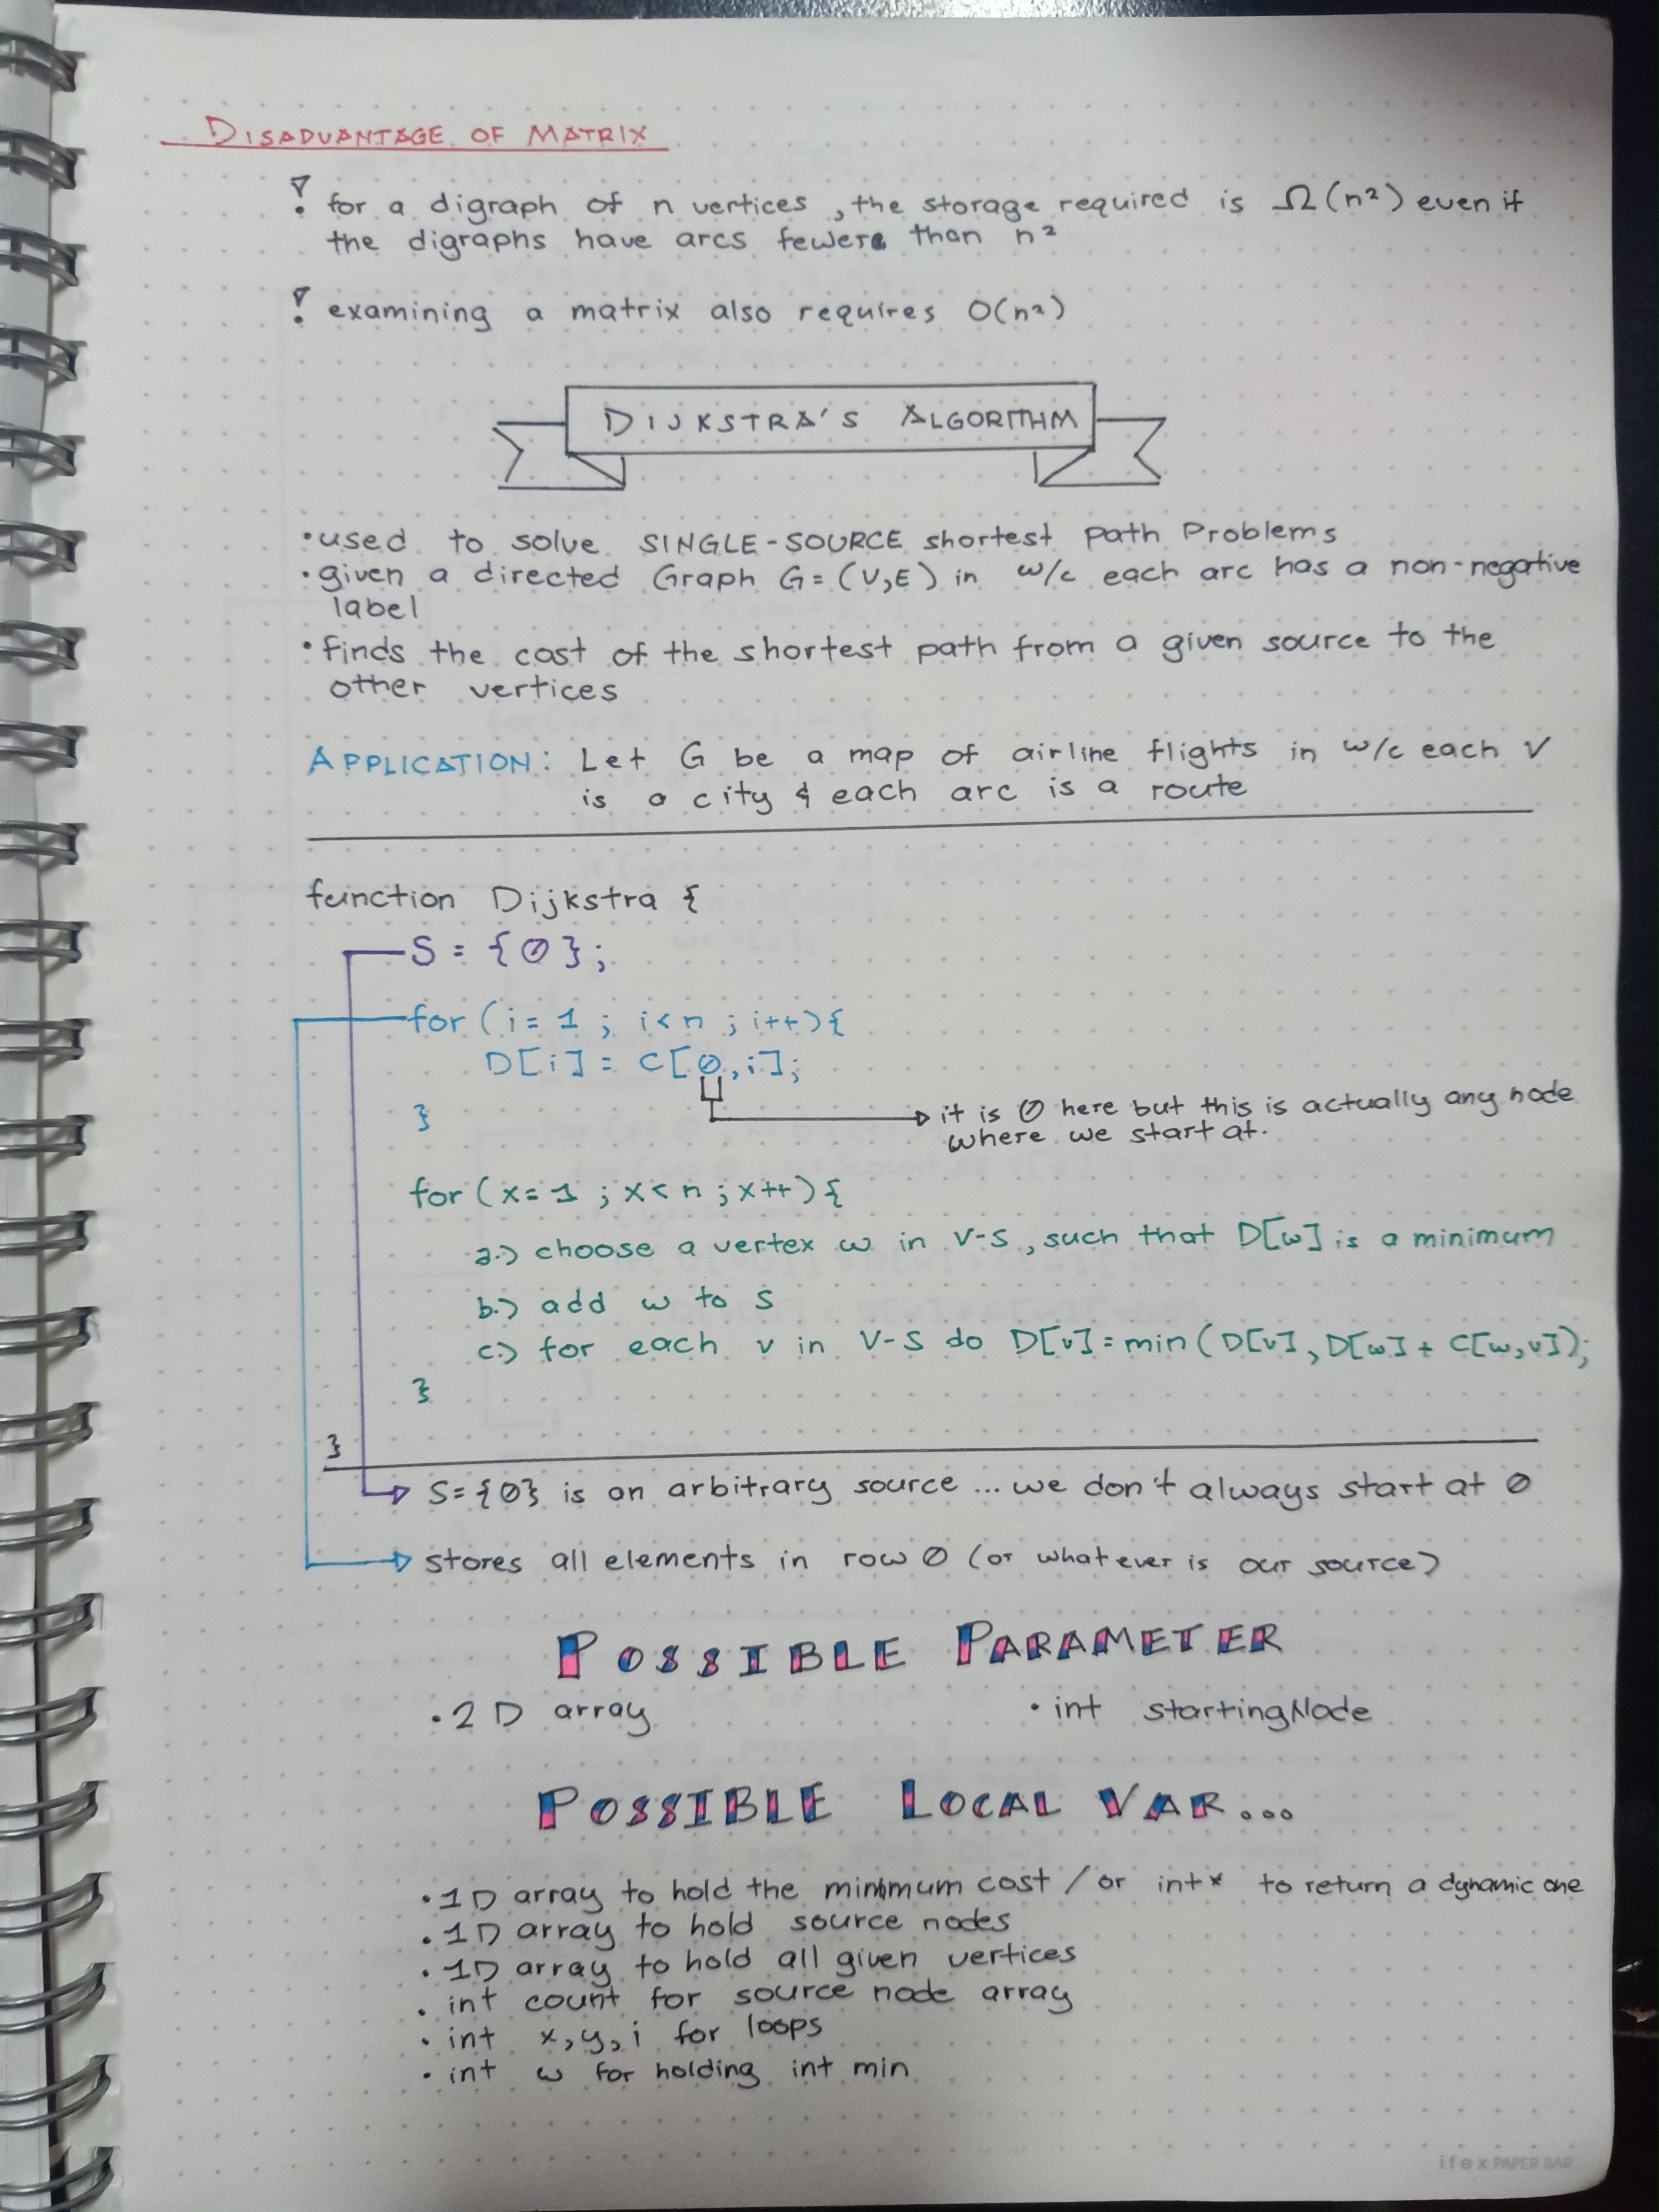 DISADVANTAGE OF MATRIX
! for a digraph of n vertices, the storage required is Ω(n²) even if
the digraphs have arcs fewer than n²
! examining a matrix also requires O(n²)
DIJKSTRA'S ALGORITHM
• used to solve SINGLE-SOURCE shortest path Problems
• given a directed Graph G = (V,E) in w/c each arc has a non-negative
label
• finds the cost of the shortest path from a given source to the
other vertices
APPLICATION: Let G be a map of airline flights in w/c each V
is a city & each arc is a route
function Dijkstra {
S = {0};
for (i = 1 ; i < n ; i++){
D[i] = C[0,i];
it is 0 here but this is actually any node
}
where we start at.
for (x = 1 ; x < n ; x++){
a.) choose a vertex w in V-S, such that D[w] is a minimum
b.) add w to S
c.) for each v in V-S do D[v] = min(D[v], D[w] + C[w,v]);
}
}
S={0} is an arbitrary source ... we don't always start at 0
stores all elements in row 0 (or whatever is our source)
POSSIBLE PARAMETER
• 2D array • int startingNode
POSSIBLE LOCAL VAR...
• 1D array to hold the minimum cost / or int* to return a dynamic one
• 1D array to hold source nodes
• 1D array to hold all given vertices
• int count for source node array
• int x,y,i for loops
• int w for holding int min
ifex PAPER BAR